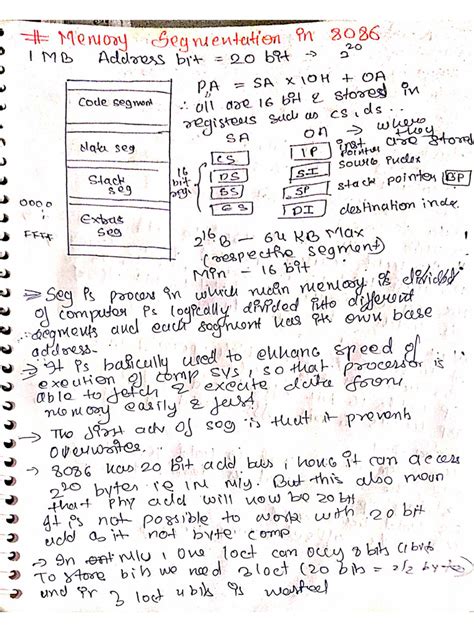 # Memory Segmentation in 8086
1 MB Address bit = 20 bit → 2^20
PA = SA x 10H + OA
∴ all are 16 bit & stored in
registers such as cs, ds..
SA OA → where they
are stored
Code segment
Data seg
Stack seg
Extra seg
0000
FFFF
16 bit
CS IP inst pointer
DS SI source index
SS SP stack pointer BP
ES DI destination index
2^16 B — 64 KB Max
(respective segment)
Min — 16 bit
→ Seg is process in which main memory is divided
of computer is logically divided into different
segments and each segment has its own base
address.
→ It is basically used to enhang speed of
execution of comp sys, so that processor is
able to fetch & execute data from
memory easily & fast
→ The first adv of seg is that it prevents
overwrites.
→ 8086 has 20 bit add bus, it can access
2^20 bytes ie 1M mly. But this also mean
that phy add will now be 20 bit
It is not possible to work with 20 bit
add as it not byte comp
→ In mly, one loct can occy 8 bits
To store bits we need 3 loct (20 bits = 2 1/2 byte)
and in 3 loct 4 bits is wasted